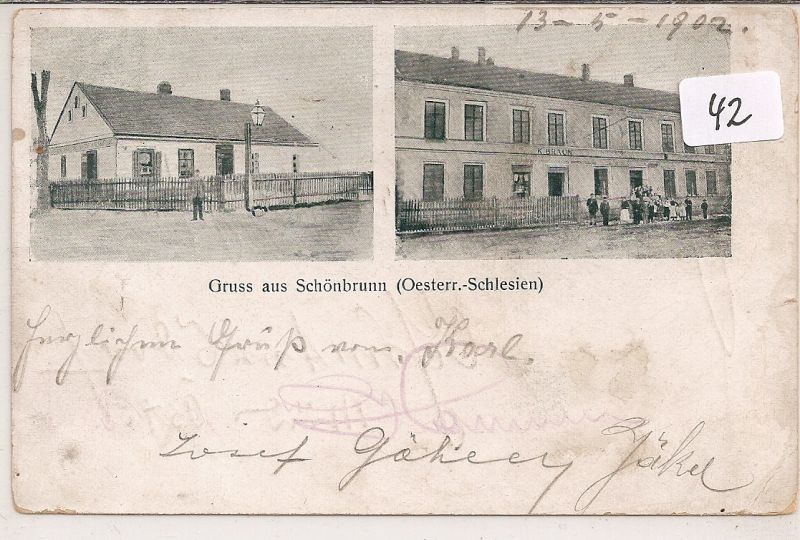 13-5-1902.
42
K. BRAUN
Gruss aus Schönbrunn (Oesterr.-Schlesien)
Herzlichen Gruß von Karl.
Josef Jäkel